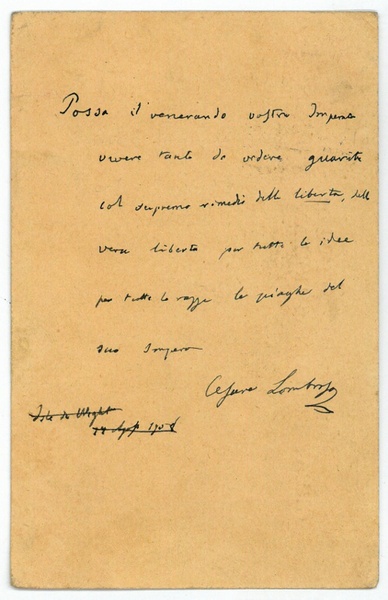 Possa il venerando vostro Imperat
vivere tanto da vedere guarite
col supremo rimedio della libertà, della
vera libertà per tutte le idee
per tutte le razze le piaghe del
suo Impero
Cesare Lombroso
Isle da Wight
1908